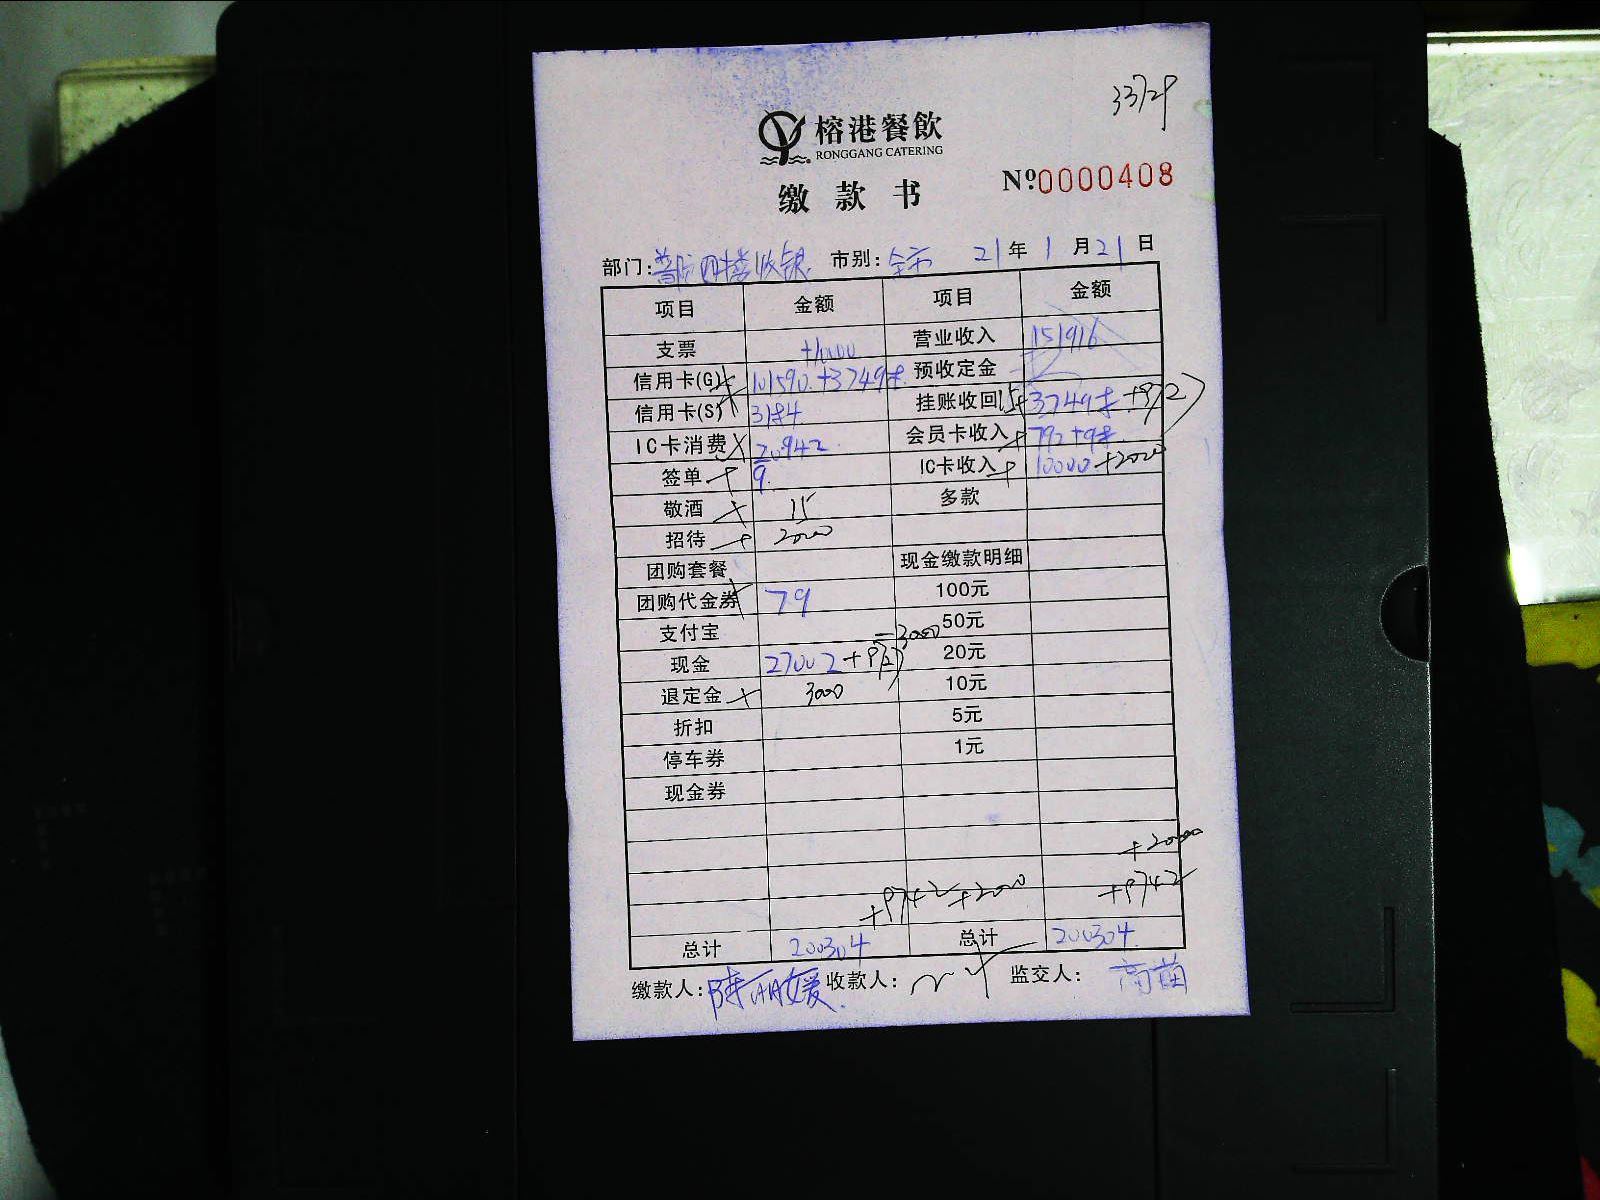 33729
榕港餐飲
RONGGANG CATERING
缴款书
Nº0000408
部门:普后四楼收银 市别:全市 21年1月21日
项目 金额 项目 金额
支票 +10000 营业收入 151916
信用卡(G) 101590.+3749 预收定金
信用卡(S) 3184 挂账收回 15+ 3749
IC卡消费 20942 会员卡收入 792+9
签单 9. IC卡收入 10000+2000
敬酒 15 多款
招待 2000
团购套餐 现金缴款明细
团购代金券 79 100元
支付宝 -3000 50元
现金 27002 20元
退定金 3000 10元
折扣 5元
停车券 1元
现金券
+9742+2000 +9742
总计 200304 总计 200304.
缴款人: 收款人: 监交人: